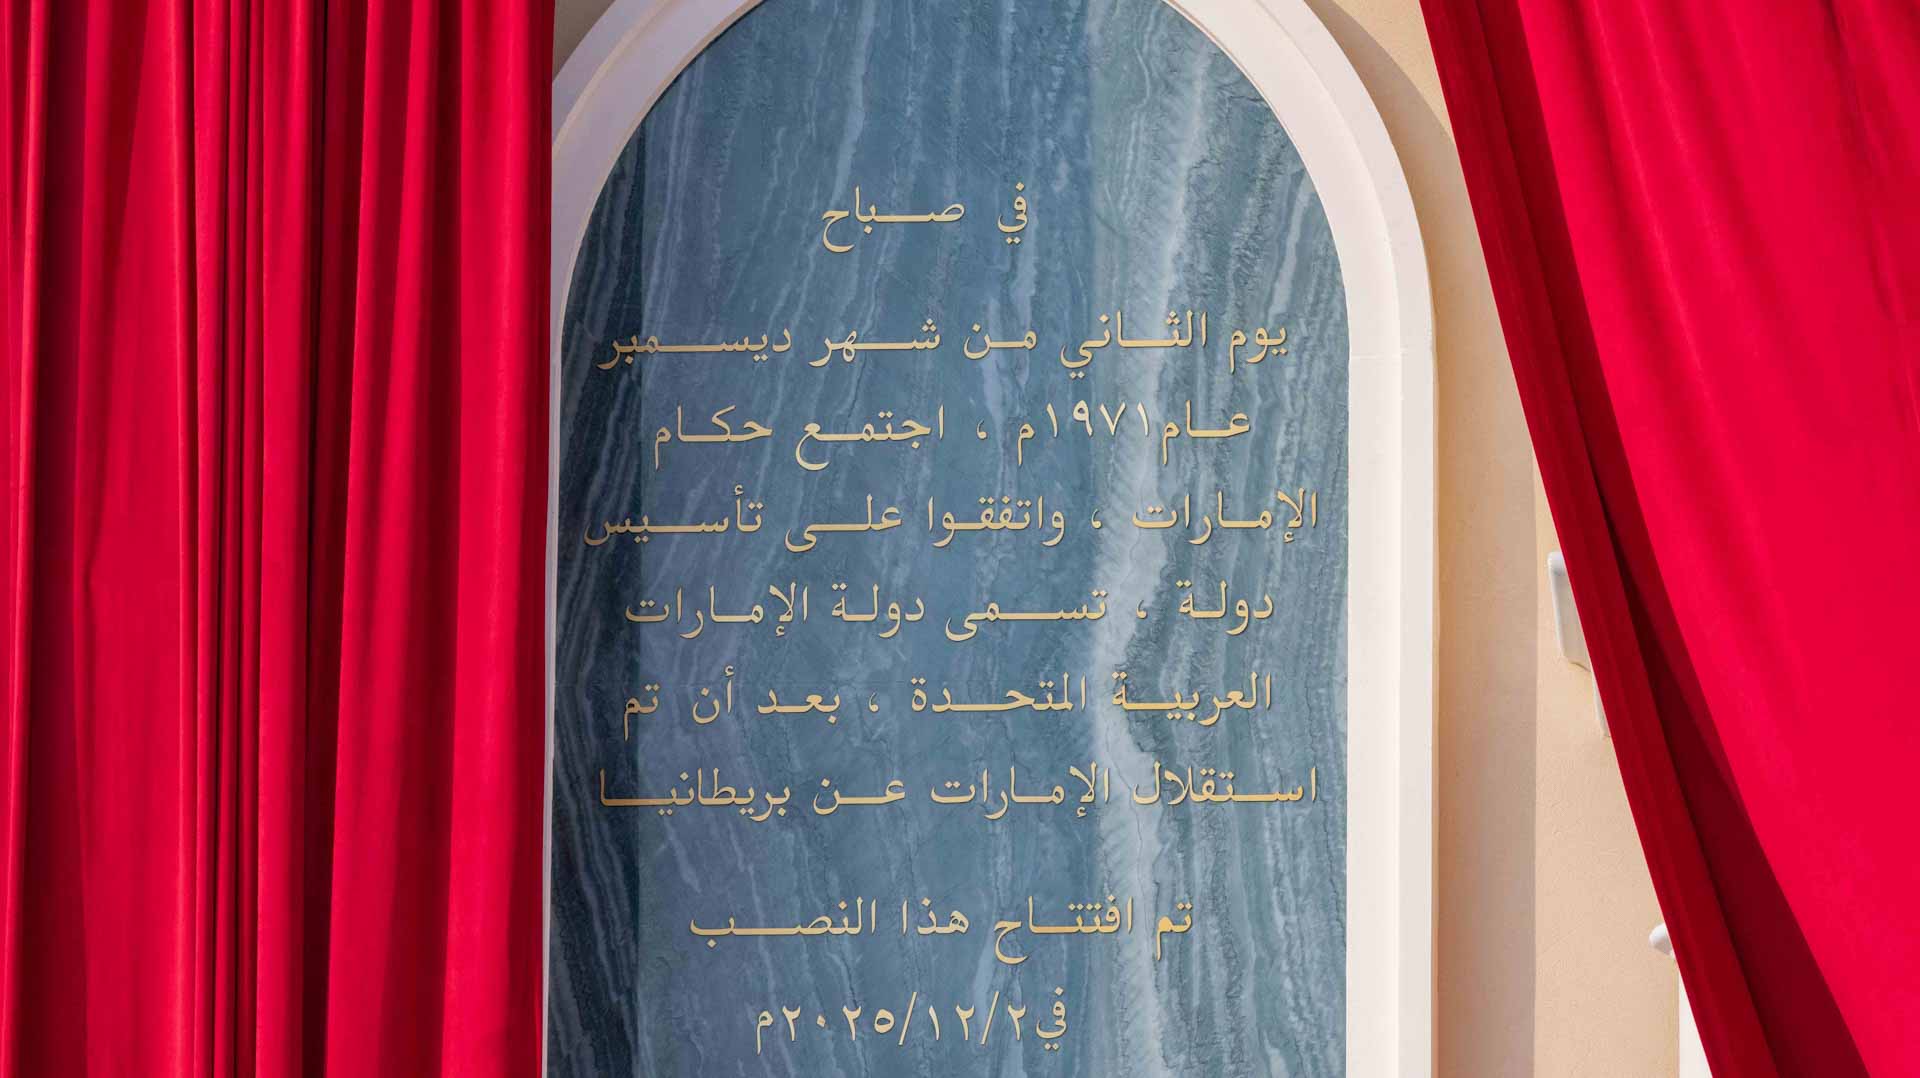 في صباح
يوم الثاني من شهر ديسمبر
عام١٩٧١م ، اجتمع حكام
الإمارات ، واتفقوا على تأسيس
دولة ، تسمى دولة الإمارات
العربية المتحدة ، بعد أن تم
استقلال الإمارات عن بريطانيا
تم افتتاح هذا النصب
في٢٠٢٥/١٢/٢م